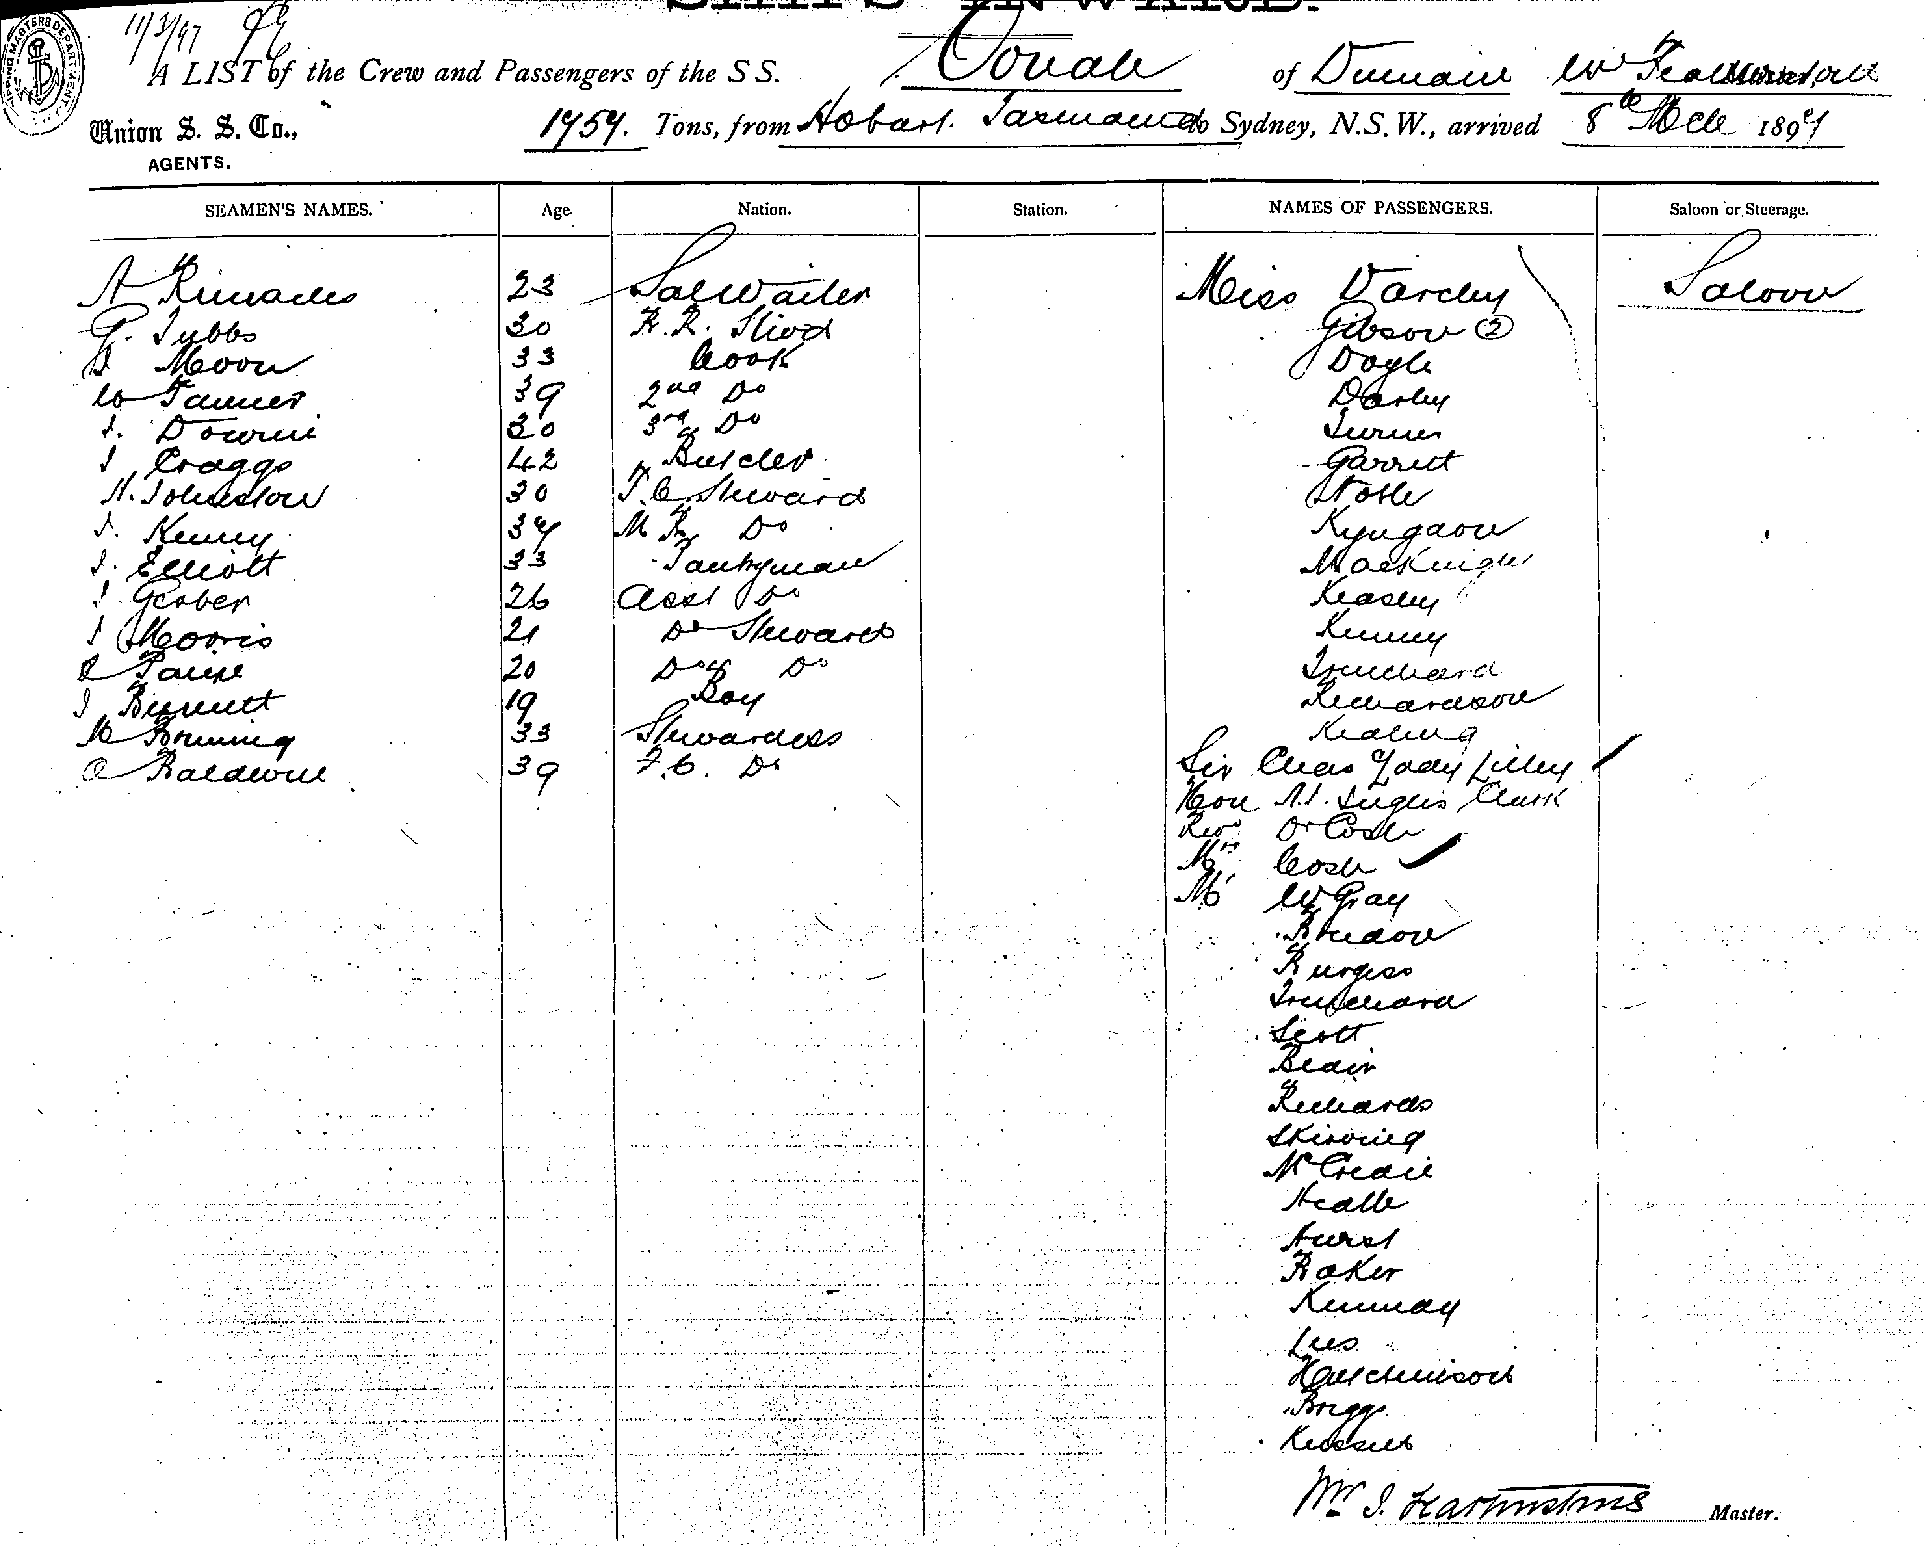 SHIPS INWARD.
11/3/97
A LIST of the Crew and Passengers of the S S. Oonah of Dunedin, Master
Union S. S. Co., AGENTS.
1757. Tons, from Hobart. Tasmania to Sydney, N.S.W., arrived 8th Mch 1897
SEAMEN'S NAMES. Age Nation. Station. NAMES OF PASSENGERS. Saloon or Steerage.
A 23 Sal Waiter Miss Darcey Saloon
G. Tubbs 30 Gibson 2
Moon 33 Cook Doyle
W Tanner 39 2nd Do Darley
J. Downie 30 3rd Do Turner
J Craggs 42 Butcher Garrett
H. Johnston 30 F. C. Steward Noble
J. Kenny 34 M R Do
J. Elliott 33 Pantryman MacKnight
J Gerber 26 Asst Do Keasley
J Morris 21 Dk Steward Kenny
20 Do Do Truchard
J Burnett 19 Boy Richardson
M 33 Stewardess Keating
A Baldwin 39 F. C. Do Sir Chas & Lady Lilley
Hon A. I. Inglis Clark
Revd Dr Cosh
Mrs Cosh
Mr W Gray
Brudon
Burgess
Truchard
Scott
Blair
Richards
Skirving
McCredie
Heath
Hurst
Baker
Kennedy
Lees
Hutchinson
Briggs
Master.